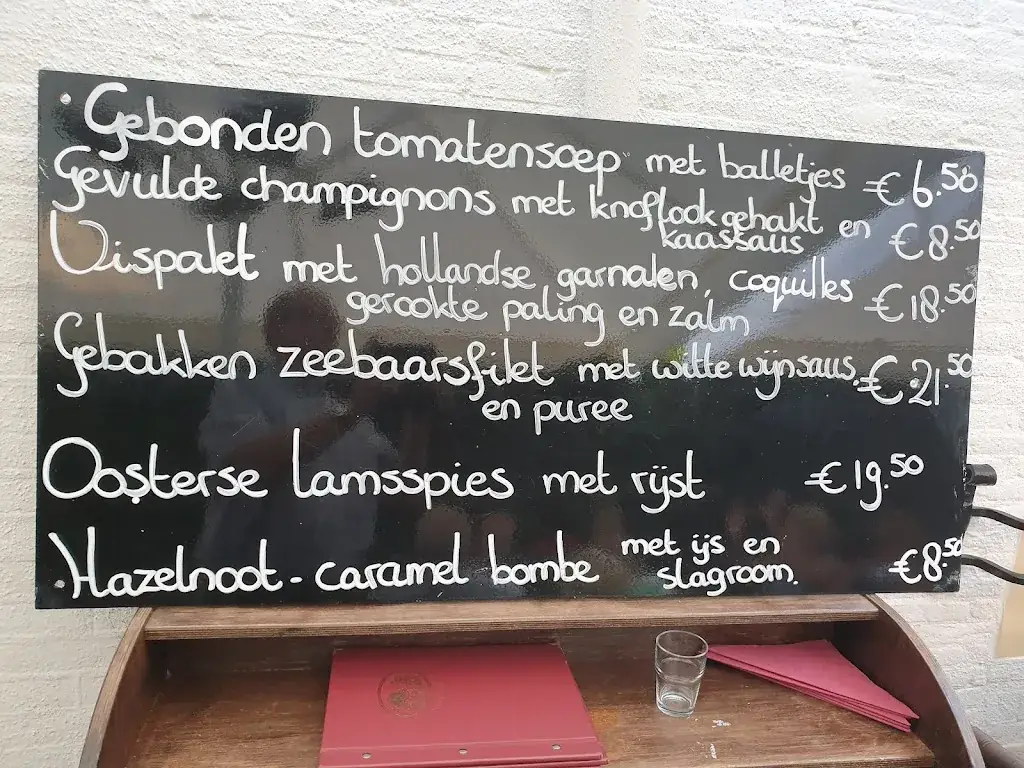 Gebonden tomatensoep met balletjes € 6.50
Gevulde champignons met knoflook gehakt en
kaassaus € 8.50
Vispaket met hollandse garnalen, coquilles
gerookte paling en zalm € 18.50
Gebakken zeebaarsfilet met witte wijnsaus. € 21.50
en puree
Oosterse lamsspies met rijst € 19.50
Hazelnoot - caramel bombe met ijs en
slagroom. € 8.50